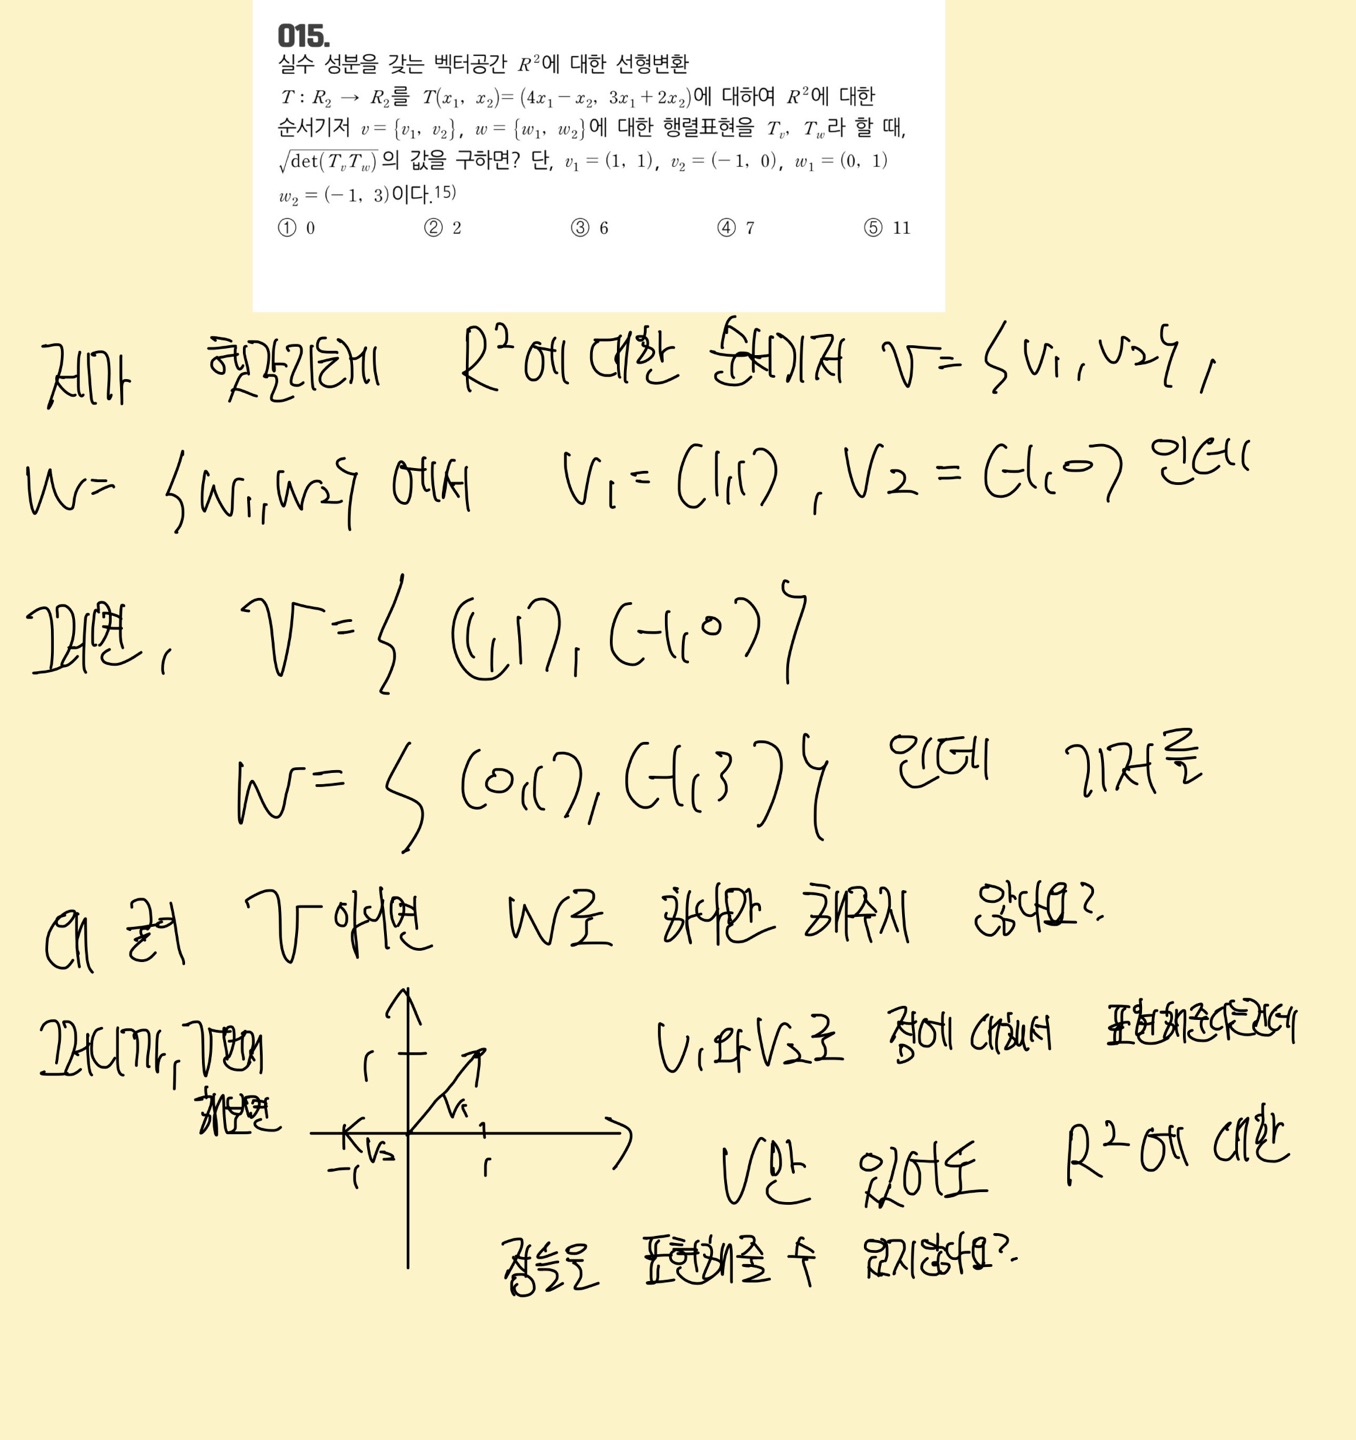 015.
실수 성분을 갖는 벡터공간 R²에 대한 선형변환
T : R₂ → R₂를 T(x₁, x₂)= (4x₁ − x₂, 3x₁ + 2x₂)에 대하여 R²에 대한
순서기저 v = {v₁, v₂}, w = {w₁, w₂}에 대한 행렬표현을 Tᵥ, T_w라 할 때,
√det(TᵥT_w)의 값을 구하면? 단, v₁ = (1, 1), v₂ = (−1, 0), w₁ = (0, 1)
w₂ = (−1, 3)이다.15)
① 0 ② 2 ③ 6 ④ 7 ⑤ 11
제가 헷갈리는게 R²에 대한 순서기저 V = {V₁, V₂},
W = {W₁, W₂} 에서 V₁ = (1,1), V₂ = (-1,0) 인데
그러면, V = { (1,1), (-1,0) }
W = { (0,1), (-1,3) } 인데 기저를
왜 굳이 V 아니면 W로 하나만 해주지 않나요?
그러니까, V만
해보면
1
V₁
V₂
-1
1
V₁와 V₂로 점에 대해서 표현해준다는건데
V만 있어도 R²에 대한
점들은 표현해줄 수 있지않나요?